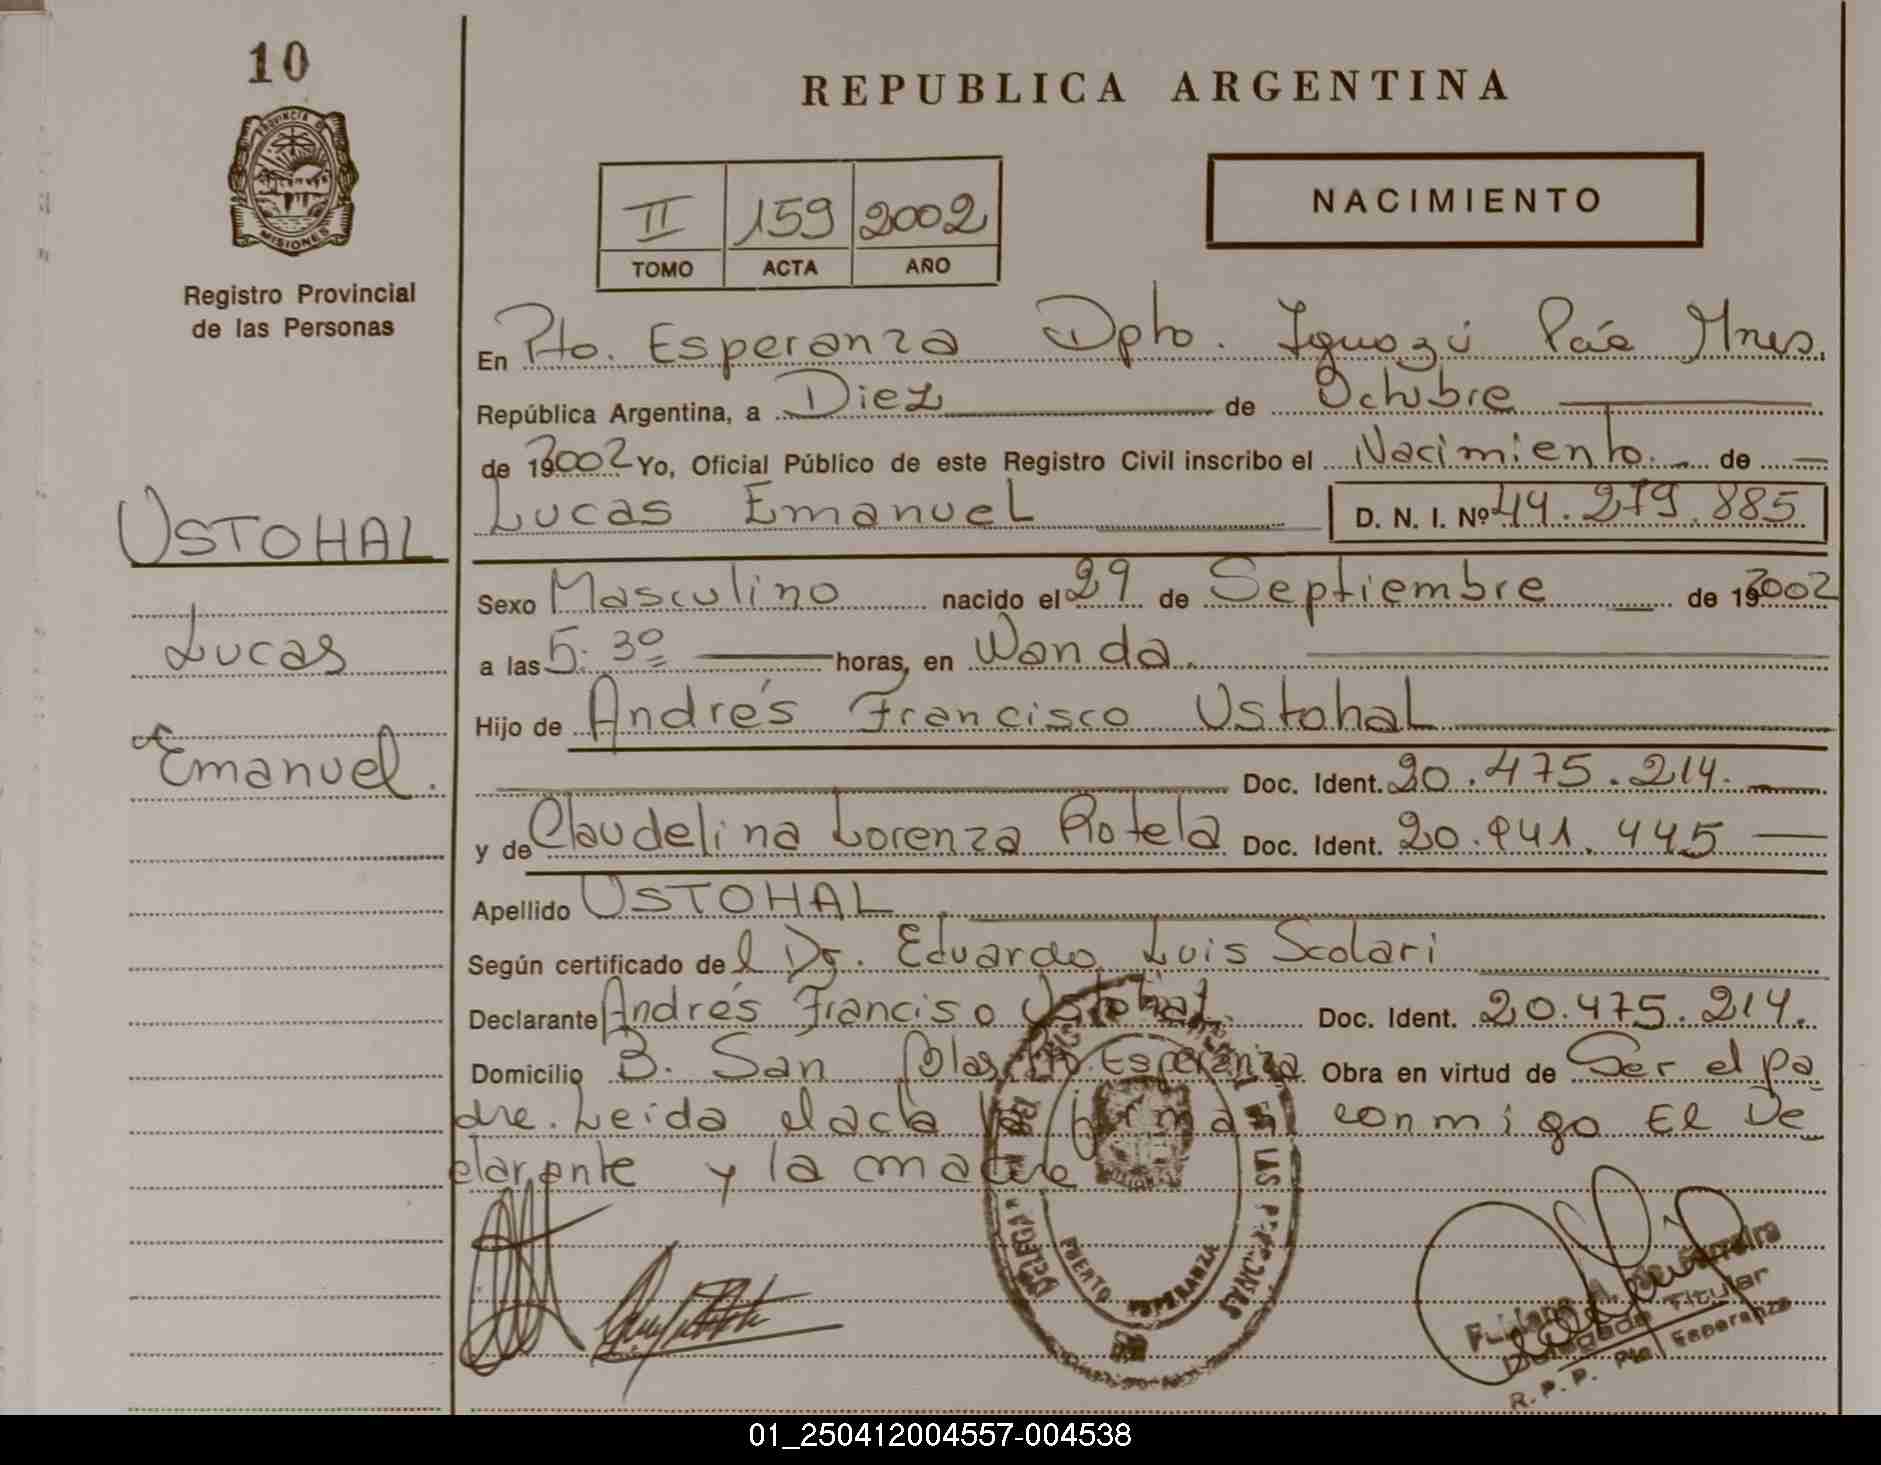 10
PROVINCIA DE
MISIONES
Registro Provincial
de las Personas
USTOHAL
Lucas
Emanuel.
REPUBLICA ARGENTINA
II 159 2002
TOMO ACTA AÑO
NACIMIENTO
En Pto. Esperanza Dpto. Iguazú Mnes.
República Argentina, a Diez de Octubre
de 192002 Yo, Oficial Público de este Registro Civil inscribo el Nacimiento. de
Lucas Emanuel D. N. I. Nº 44.279.885
Sexo Masculino nacido el 29 de Septiembre de 192002
a las 5:30 horas, en Wanda.
Hijo de Andrés Francisco Ustohal
Doc. Ident. 20.475.214.
y de Claudelina Lorenza Rotela Doc. Ident. 20.941.445
Apellido USTOHAL
Según certificado del Dr. Eduardo Luis Scolari
Declarante Andrés Franciso Ustohal. Doc. Ident. 20.475.214.
Domicilio B. San Blas Pto. Esperanza Obra en virtud de Ser el pa
dre. Leida el acta la firman conmigo El De
clarante y la madre
DELEGACIA LAS PERSONAS
PUERTO ESPERANZA
Ferreira
Delegado Titular
R. P. P. Pto. Esperanza
01_250412004557-004538